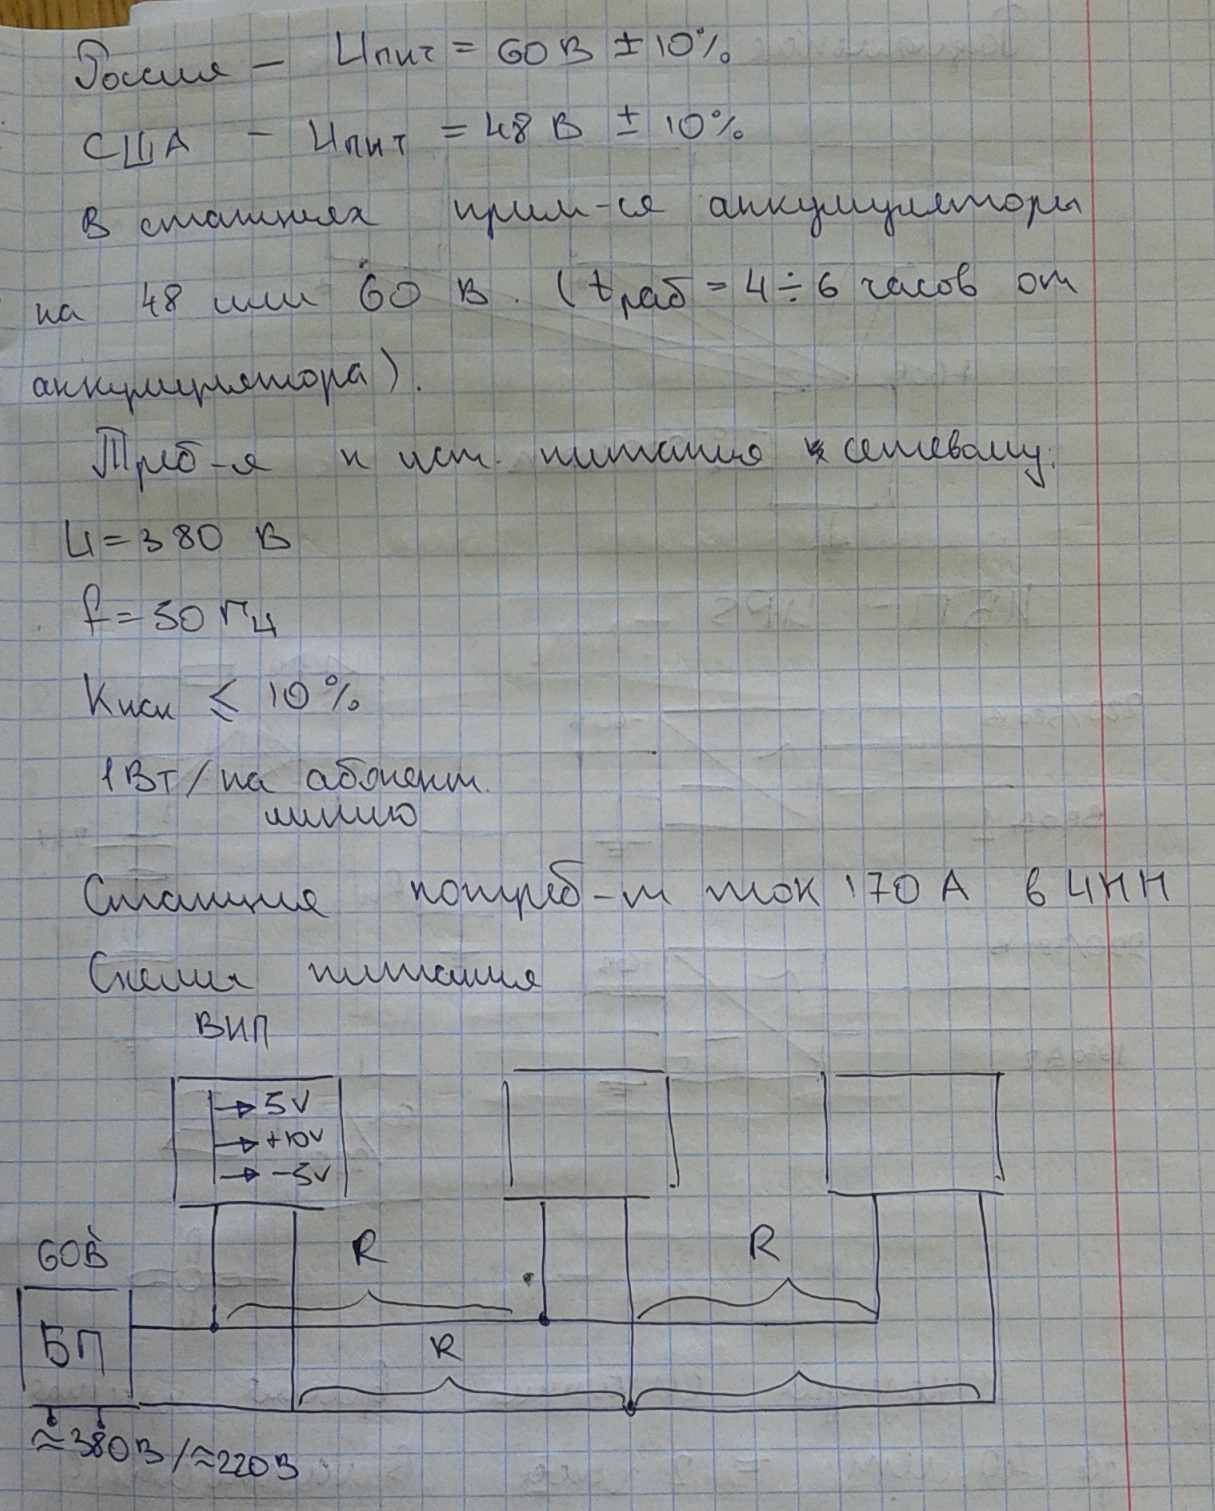 Россия – Uпит = 60 В ± 10%
США – Uпит = 48 В ± 10%
В станциях прим-ся аккумуляторы
на 48 или 60 В. (tраб = 4÷6 часов от
аккумулятора).
Треб-я к ист. питания сетевому:
U = 380 В
f = 50 Гц
Kиск ≤ 10%
1 Вт/на абонент.
линию
Станция потреб-т ток 170 А в ЧНН
Схема питания
ВИП
5V
+10V
-5V
60В
R
R
БП
R
≈380В/≈220В